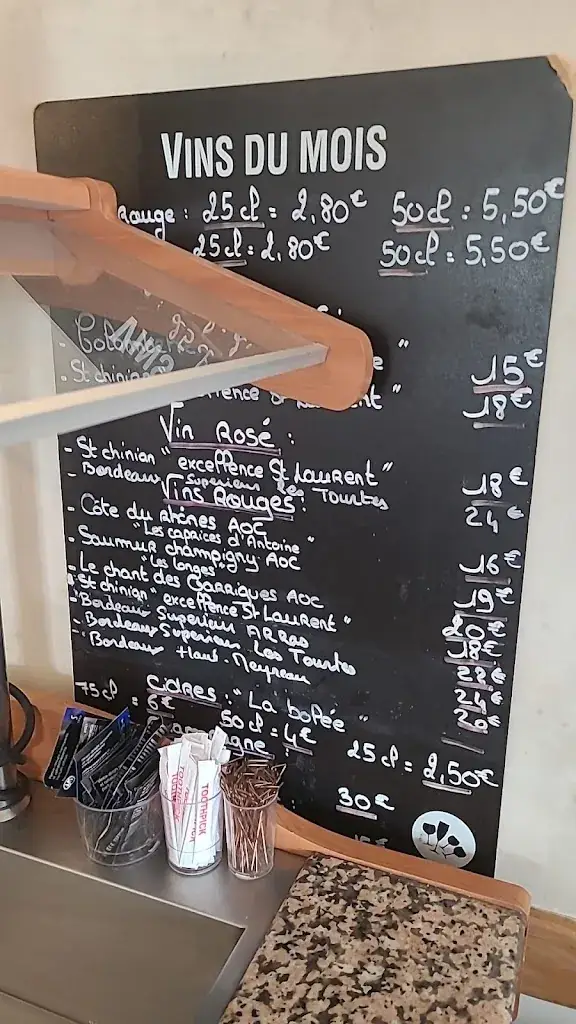 VINS DU MOIS
Rouge : 25cl = 2,80€ 50cl : 5,50€
25cl = 2,80€ 50cl = 5,50€
"
- St chinian "
15€
18€
Vin Rosé :
- St chinian " exceffence St LAURENT " 18€
- Bordeaux Superieur Les Tourtes 24€
Vins Rouges :
- Côte du Rhônes AOC
"Les caprices d'Antoine" 16€
- Saumur champigny AOC
"Les Longes" 19€
- Le chant des Garrigues AOC 20€
- St chinian " exceffence St LAURENT " 18€
- Bordeaux Superieur ARRAS
- Bordeaux Superieur Les Tourtes 24€
- Bordeaux Haut-Meyreau
CIDRES : " La bolée "
75cl = 6€ 50cl = 4€ 25cl = 2,50€
30€
TOOTHPICK